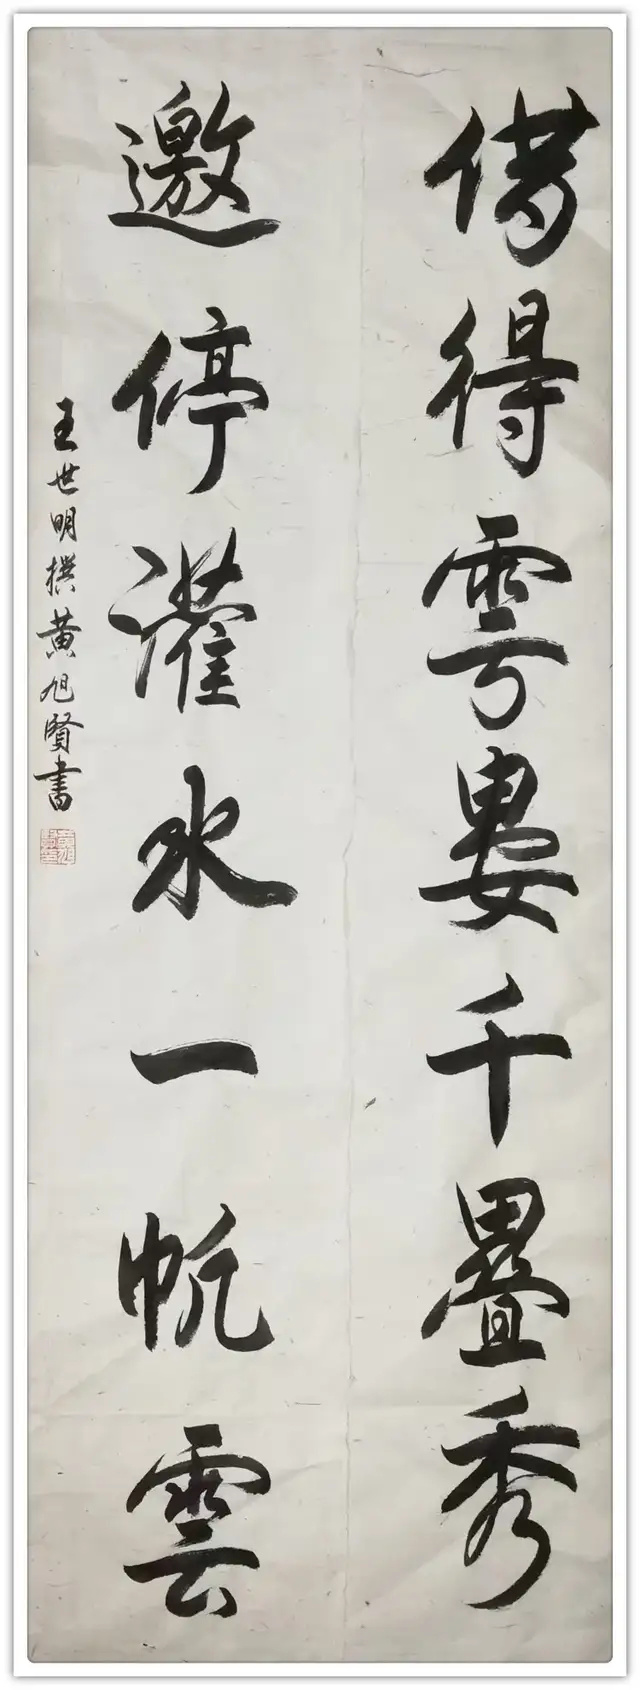 借得雩婁千疊秀
邀停灌水一帆雲
王世明撰黄旭賢書